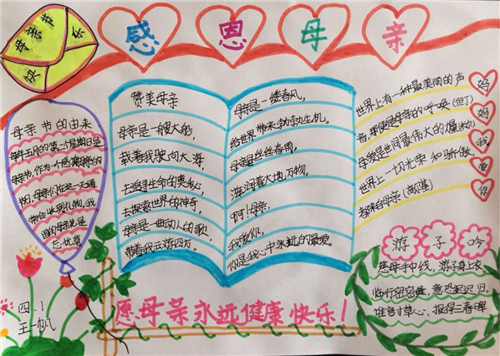 母亲节
快乐
感恩母亲
母亲节的由来
每年五月的第二个星期日是
赞美母亲
母亲是一艘大船,
载着我驶向大海,
去探索世界的神奇,
母亲是一曲动人的歌,
母亲是一缕春风,
给世界带来勃勃生机。
母亲是丝丝春雨,
滋润着大地万物,
啊!母亲,
我爱你,
你是我心中永远的最爱。
世界上有一种最美丽的声
音,那便是母亲的呼唤(但丁)
母爱是世间最伟大的
世界上一切光荣和骄傲,
都来自母亲(高尔基)
妈
妈
我
爱
你
游子吟
慈母手中线,游子身上衣
临行密密缝,意恐迟迟归。
谁言寸草心,报得三春晖
四.1
王一帆
愿母亲永远健康快乐!